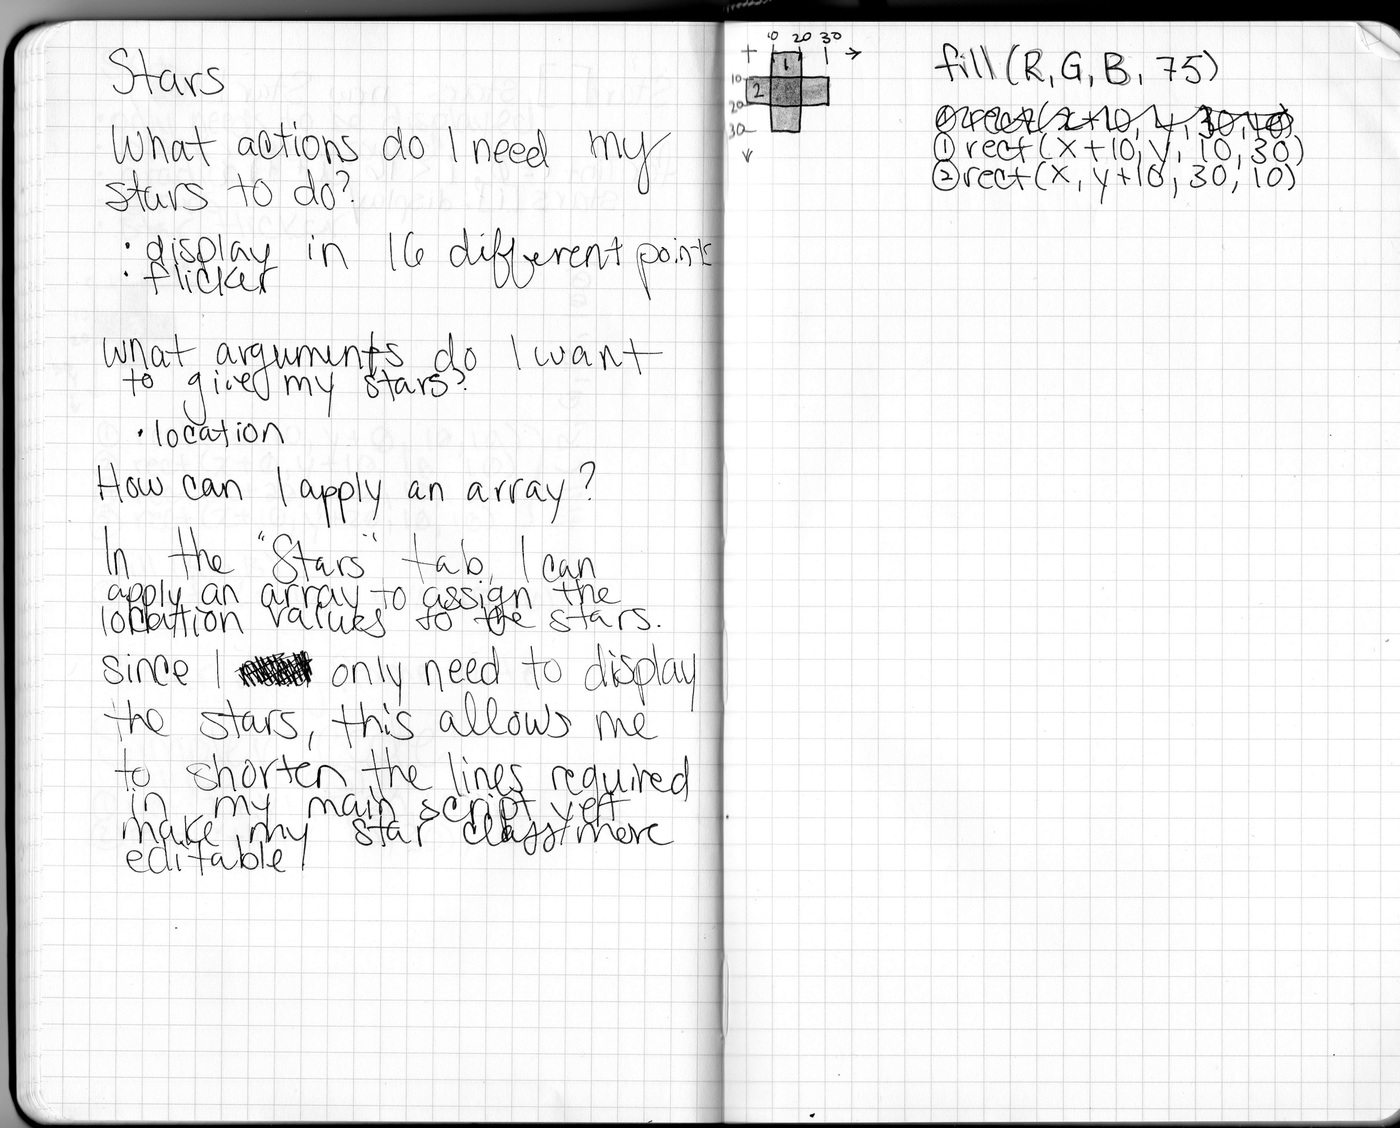 Stars
What actions do I need my
stars to do?
· display in 16 different points
· flicker
What arguments do I want
to give my stars?
· location
How can I apply an array?
In the "Stars" tab, I can
apply an array to assign the
location values to the stars.
since I only need to display
the stars, this allows me
to shorten the lines required
in my main script yet
make my star class more
editable!
10 20 30
+ →
1
10
2
20
30
fill(R, G, B, 75)
① rect(x+10, y, 30, 10)
① rect(x+10, y, 10, 30)
② rect(x, y+10, 30, 10)